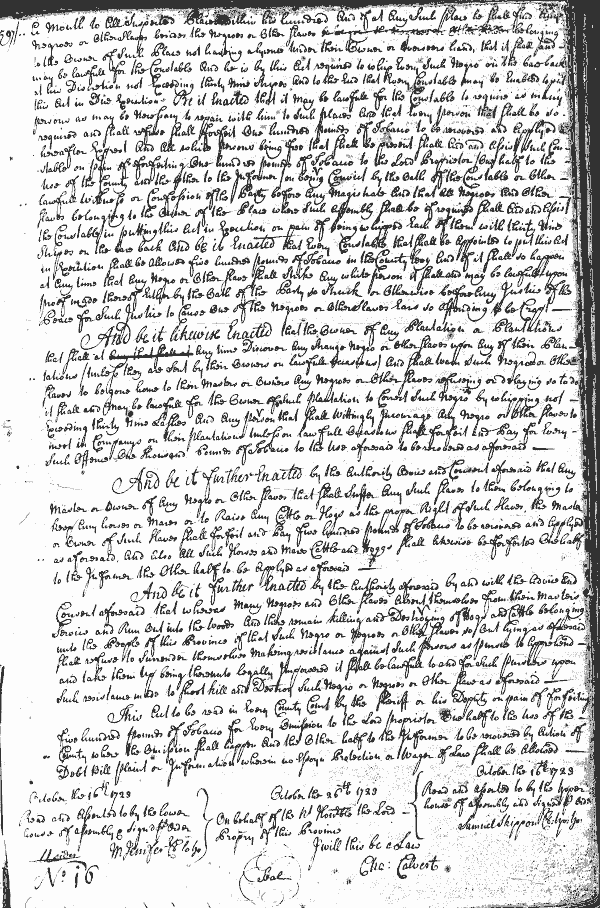 Month to All Suspected Places within his hundred And if at Any Such place he Shall find Any
Negroes or Other Slaves besides the Negroes or Other Slaves belonging
to the Owner of Such Place not having a lycence under their Owner or Overseers hand, that it Shall and
may be lawfull for the Constable And he is by this Act required to whip Every Such Negro on the bare back
at his Discretion not Exceeding thirty Nine Stripes And to the End that Every Constable may be Enabled to put
this Act in Due Execution Be it Enacted that it may be lawfull for the Constable to require as many
persons as may be Necessary to repair with him to Such places And that Every person that Shall be so
required and Shall refuse Shall forfeit One hundred pounds of Tobacco to be recovered and Applyed
hereafter Exprest And All white persons being five that Shall be present Shall Aid and Assist Such Con
stable on pain of forfeiting One hundred pounds of Tobacco to the Lord Proprietor One half to the
Use of the County and the Other to the Informer on being Convict by the Oath of the Constable or Other
lawfull Witness or Confession of the Party before Any Magistrate And that All Negroes And Other
Slaves belonging to the Owner of the Place where Such Assembly Shall be if required Shall Aid and Assist
the Constable in putting this Act in Execution on pain of being whipped Each of them with thirty Nine
Stripes on the bare back And be it Enacted that Every Constable that Shall be Appointed to put this Act
in Execution Shall be Allowed five hundred pounds of Tobacco in the County Levy And if it Shall so happen
at Any time that Any Negro or Other Slave Shall Strike Any white person it Shall and may be lawfull upon
proof made thereof Either by the Oath of the Party so Struck or Otherwise before Any Justice of the
Peace for Such Justice to Cause One of the Negroes or Other Slaves Ears so Offending to be Cropt
And be it likewise Enacted that the Owner of Any Plantation or Plantations
that Shall at Any time Discover Any Strange Negro or Other Slaves upon Any of their Plan
tations (unless they are Sent by their Owners on lawfull Occasions) And Shall warn Such Negroes or Other
Slaves to be gone home to their Masters or Owners Any Negroes or Other Slaves refusing or delaying so to do
it Shall and may be lawfull for the Owner of Such Plantation to Correct Such Negroes by whipping not
Exceeding thirty Nine lashes And Any person that Shall Wittingly Encourage Any Negro or Other Slaves to
meet in Company on their Plantations unless on lawfull Occasions Shall forfeit and pay for Every
Such Offence One thousand Pounds of Tobacco to the Use aforesaid to be recovered as aforesaid
And be it further Enacted by the Authority Advice and Consent aforesaid that Any
Master or Owner of Any Negro or Other Slaves that Shall Suffer Any Such Slaves to them belonging to
keep Any horses or Mares or to Raise Any Cattle or Hogs as the proper Right of Such Slaves, the Master
or Owner of Such Slaves Shall forfeit and pay five hundred pounds of Tobacco to be recovered and Applyed
as aforesaid. And Also All Such Horses and Mares Cattle and Hoggs Shall likewise be forfeited One half
to the Informer the Other half to be Applyed as aforesaid
And be it further Enacted by the Authority aforesaid by and with the Advice and
Consent aforesaid that whereas Many Negroes and Other Slaves Absent themselves from their Masters
Service and Run Out into the Woods And there remain killing and Destroying of Hogs and Cattle belonging
unto the People of this Province if that Such Negro or Negroes or Other Slaves so Out lying as aforesaid
Shall refuse to Surrender themselves Making resistance against Such Persons as pursue to Apprehend
and take them up being thereunto legally Impowered it Shall be lawfull to and for Such pursuers upon
Such resistance made to Shoot kill and Destroy Such Negro or Negroes or Other Slave as aforesaid
This Act to be read in Every County Court by the Sheriff or his Deputy on pain of forfeiting
five hundred pounds of Tobacco for Every Omission to the Lord proprietor One half to the Use of the
County where the Omission Shall happen And the Other half to the Informer to be recovered by Action of
Debt Bill plaint or Information wherein no Essoyn Protection or Wager of Law Shall be Allowed
October the 16th 1723
Read and Assented to by the Lower
house of Assembly & Signd p Order
M Jenifer Cl lo ho
October the 26th 1723
On behalf of the Rt Honble the Lord
Propry of this Province
I will this be a Law
Cha: Calvert
October the 16th 1723
Read and Assented to by the upper
house of Assembly and Signd p Order
Samuel Skippon
No 16